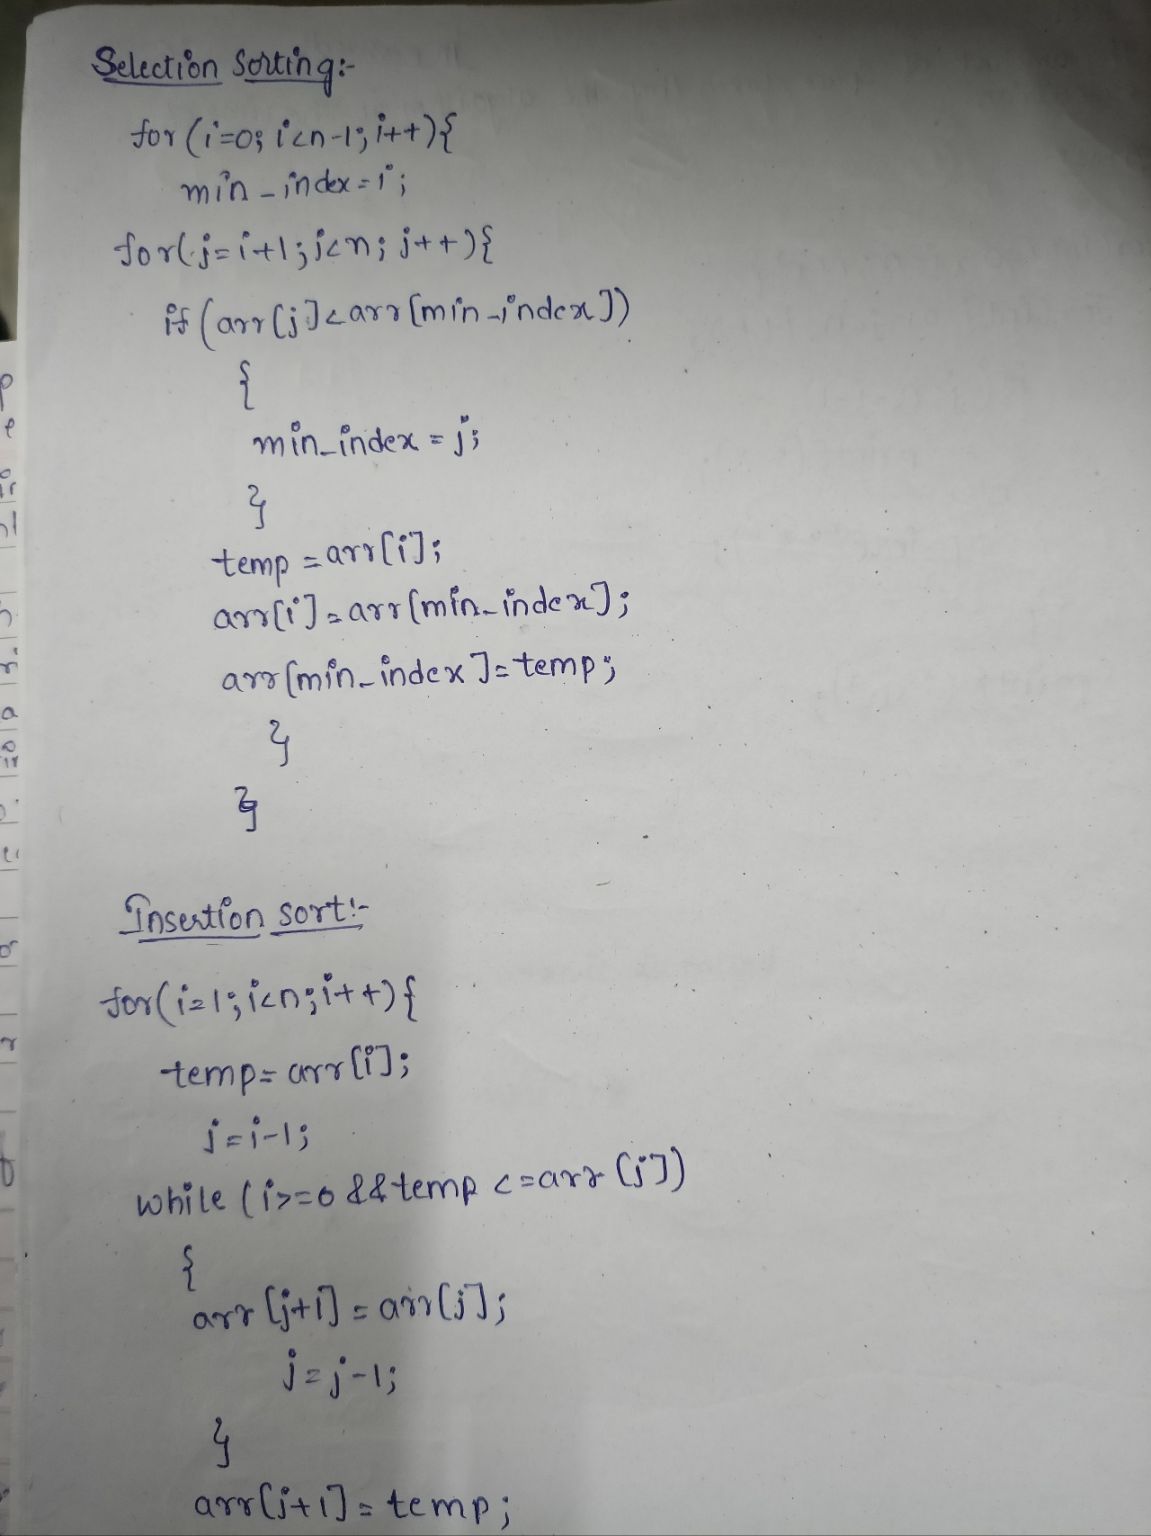 Selection Sorting:-
for(i=0; i<n-1; i++){
min_index=i;
for(j=i+1; j<n; j++){
if(arr[j]<arr[min_index])
{
min_index=j;
}
temp=arr[i];
arr[i]=arr[min_index];
arr[min_index]=temp;
}
}
Insertion sort:-
for(i=1; i<n; i++){
temp=arr[i];
j=i-1;
while(i>=0 && temp<=arr[j])
{
arr[j+1]=arr[j];
j=j-1;
}
arr[j+1]=temp;